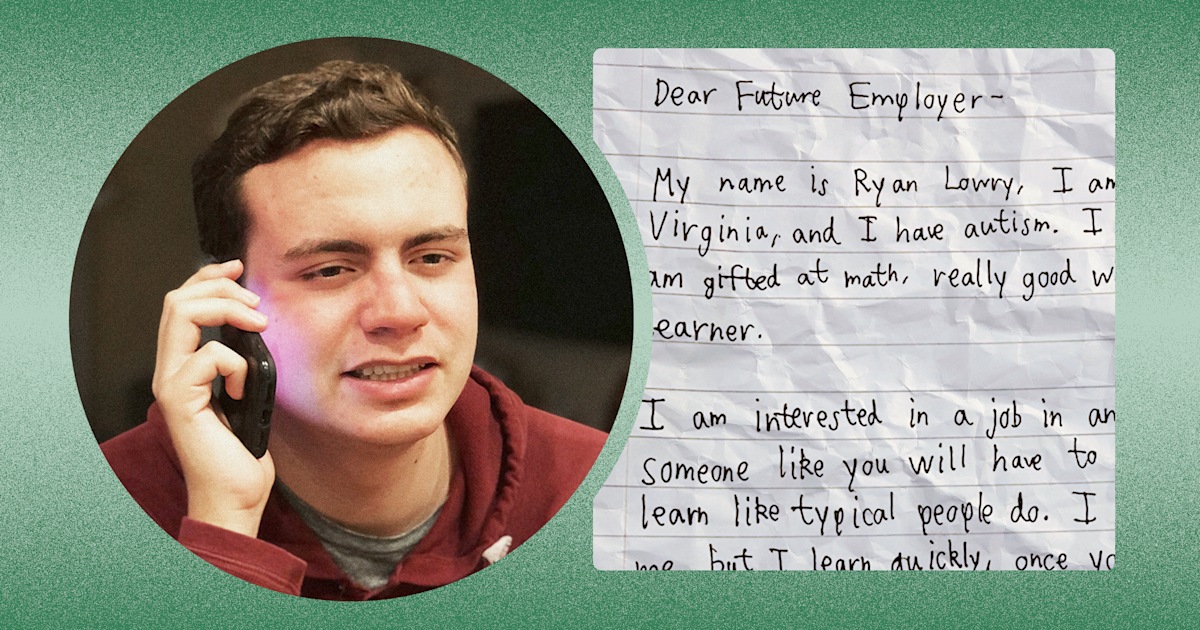 Dear Future Employer-
My name is Ryan Lowry, I am
Virginia, and I have autism. I
am gifted at math, really good
earner.
I am interested in a job in an
someone like you will have to
learn like typical people do. I
me, but I learn quickly, once